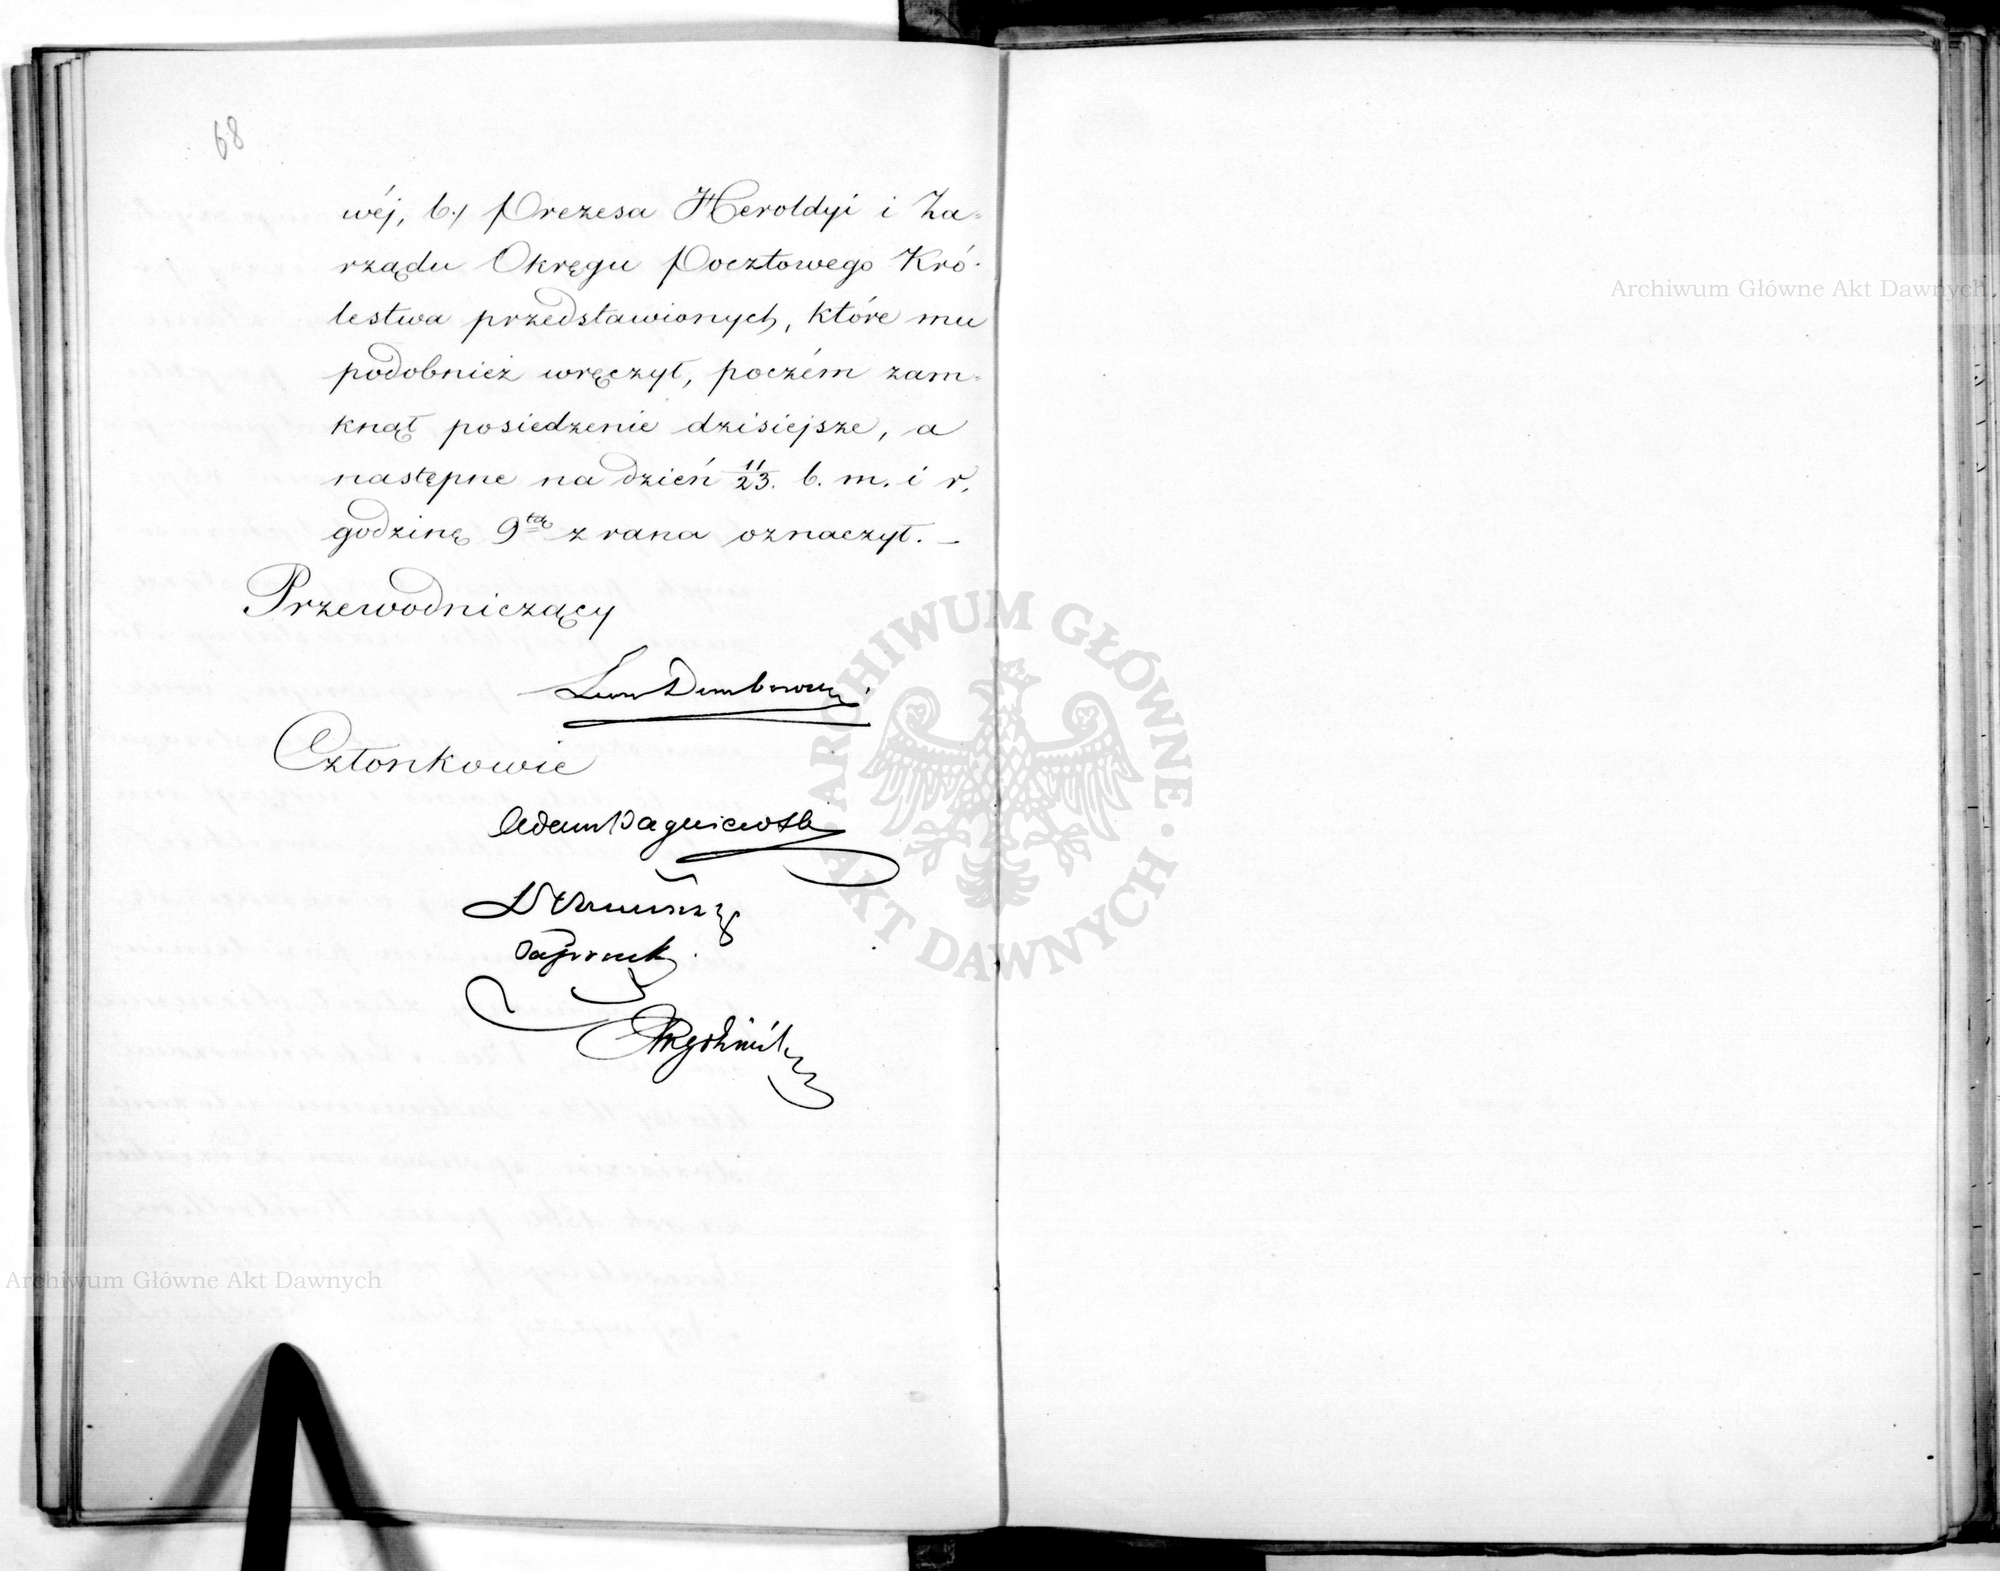 68
wéj, b./ Prezesa Heroldyi i Za-
rządu Okręgu Pocztowego Kró-
lestwa przedstawionych, które mu
podobnież wręczył, poczém zam-
knął posiedzenie dzisiejsze, a
następne na dzień 11/23. b. m. i r.
godzinę 9tą z rana oznaczył. —
Przewodniczący
Leon Dembowski
Członkowie
Archiwum Główne Akt Dawnych
ARCHIWUM GŁÓWNE
AKT DAWNYCH
Archiwum Główne Akt Dawnych